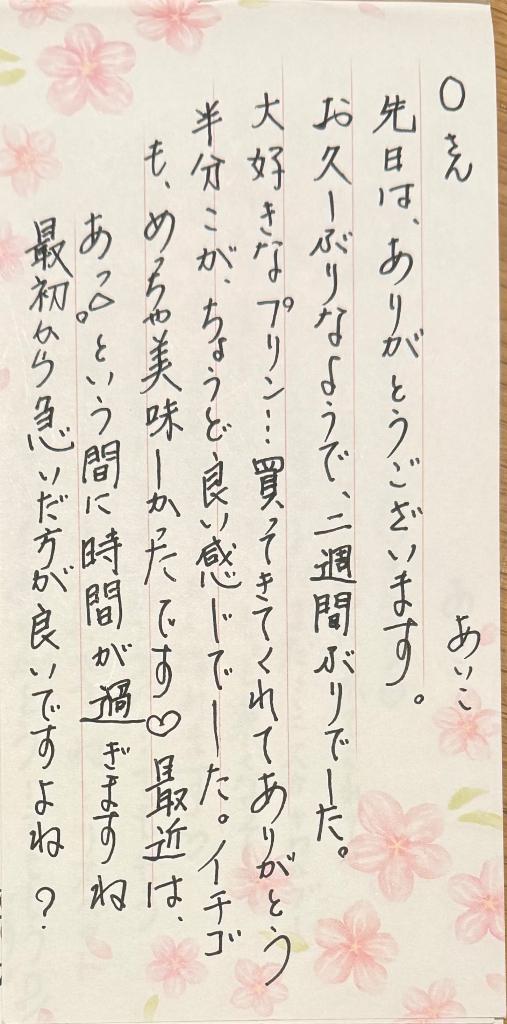 Oさん
あいこ
先日は、ありがとうございます。
お久しぶりなようで、二週間ぶりでした。
大好きなプリン…買ってきてくれてありがとう
半分こが、ちょうど良い感じでした。イチゴ
も、めっちゃ美味しかったです♡最近は、
あっという間に時間が過ぎますね
最初から急いだ方が良いですよね？